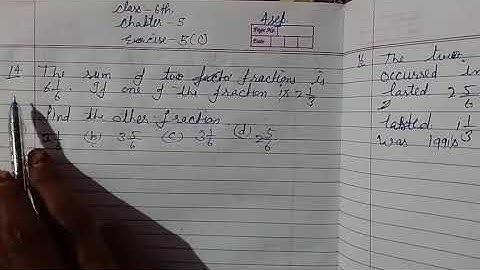 Class - 6th
Chapter - 5
Exercise - 5(C)
4 sep
Page No.
Date
14 The sum of two facto fractions is
6 1/6. If one of the fraction is 2 1/3
Find the other fraction
(b) 3 5/6 (c) 3 1/6 (d) 2 5/6
The
occurred in
lasted 2 5/6
lasted 1 1/3
was